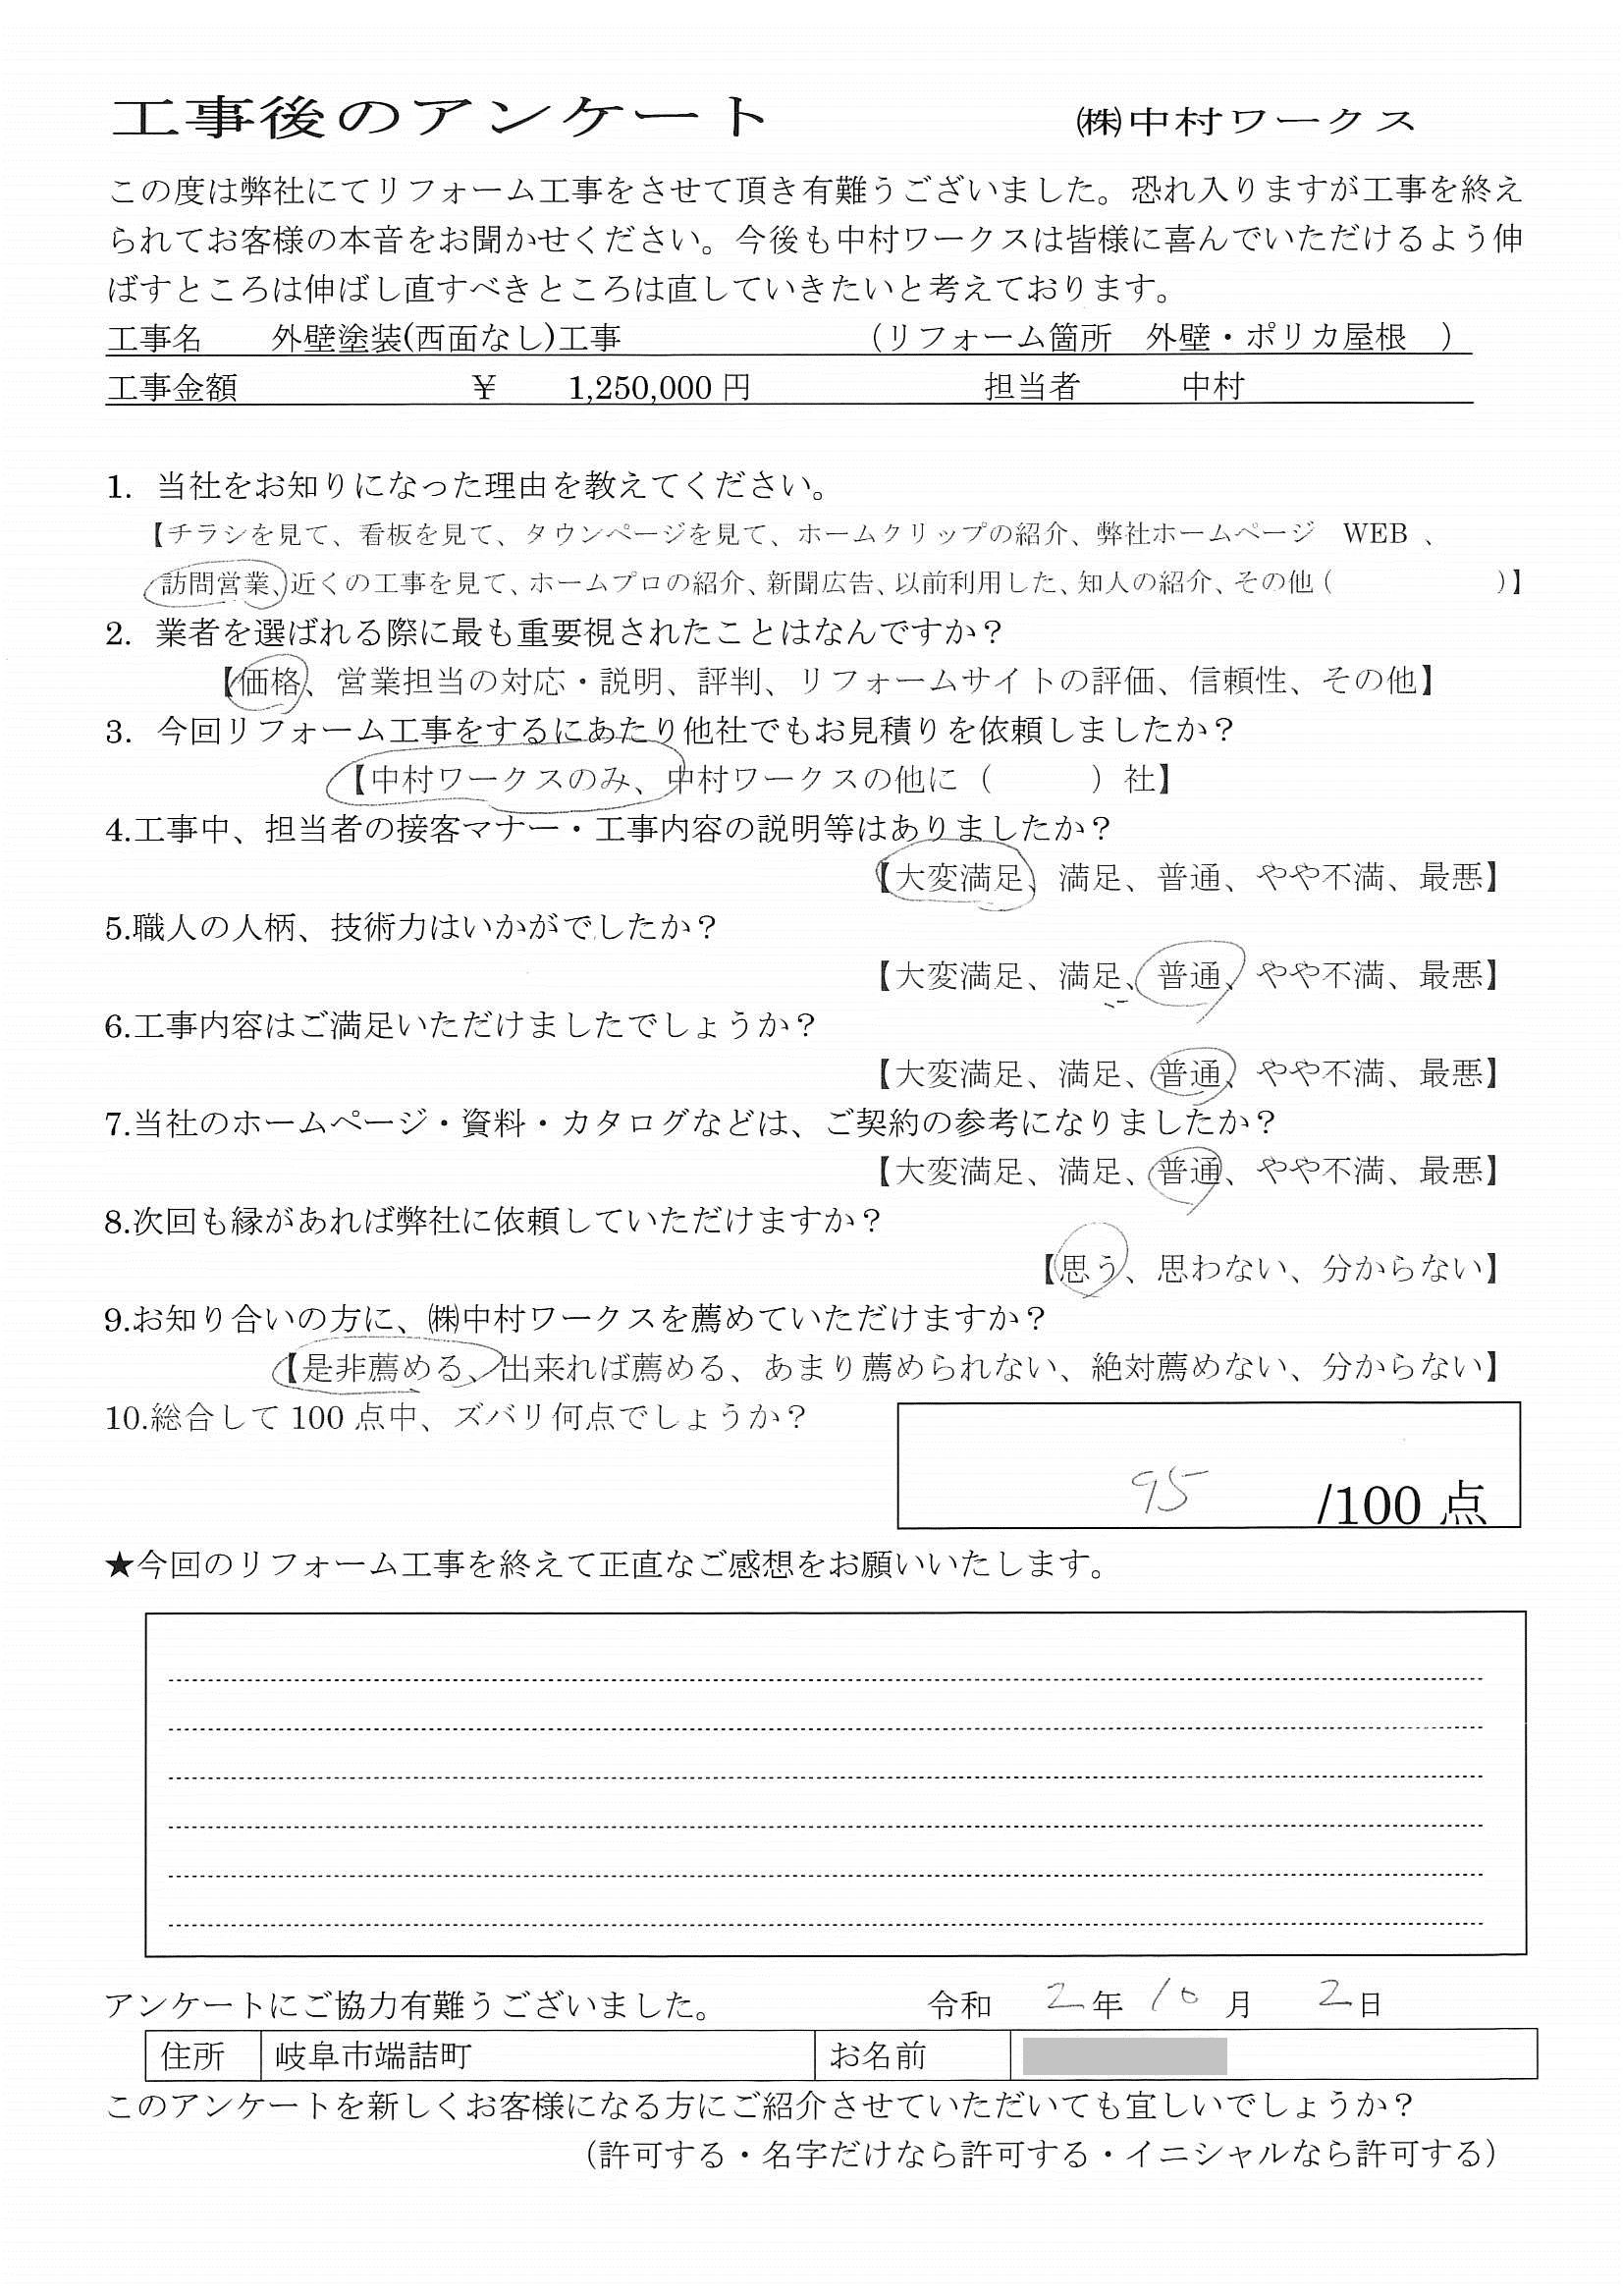 工事後のアンケート ㈱中村ワークス
この度は弊社にてリフォーム工事をさせて頂き有難うございました。恐れ入りますが工事を終え
られてお客様の本音をお聞かせください。今後も中村ワークスは皆様に喜んでいただけるよう伸
ばすところは伸ばし直すべきところは直していきたいと考えております。
工事名 外壁塗装(西面なし)工事 （リフォーム箇所 外壁・ポリカ屋根 ）
工事金額 ￥ 1,250,000 円 担当者 中村
1. 当社をお知りになった理由を教えてください。
【チラシを見て、看板を見て、タウンページを見て、ホームクリップの紹介、弊社ホームページ WEB 、
訪問営業、近くの工事を見て、ホームプロの紹介、新聞広告、以前利用した、知人の紹介、その他（ ）】
2. 業者を選ばれる際に最も重要視されたことはなんですか？
【価格、営業担当の対応・説明、評判、リフォームサイトの評価、信頼性、その他】
3. 今回リフォーム工事をするにあたり他社でもお見積りを依頼しましたか？
【中村ワークスのみ、中村ワークスの他に（ ）社】
4.工事中、担当者の接客マナー・工事内容の説明等はありましたか？
【大変満足、満足、普通、やや不満、最悪】
5.職人の人柄、技術力はいかがでしたか？
【大変満足、満足、普通、やや不満、最悪】
6.工事内容はご満足いただけましたでしょうか？
【大変満足、満足、普通、やや不満、最悪】
7.当社のホームページ・資料・カタログなどは、ご契約の参考になりましたか？
【大変満足、満足、普通、やや不満、最悪】
8.次回も縁があれば弊社に依頼していただけますか？
【思う、思わない、分からない】
9.お知り合いの方に、㈱中村ワークスを薦めていただけますか？
【是非薦める、出来れば薦める、あまり薦められない、絶対薦めない、分からない】
10.総合して 100 点中、ズバリ何点でしょうか？
95 /100 点
★今回のリフォーム工事を終えて正直なご感想をお願いいたします。
アンケートにご協力有難うございました。 令和 2 年 10 月 2 日
住所 岐阜市端詰町 お名前
このアンケートを新しくお客様になる方にご紹介させていただいても宜しいでしょうか？
（許可する・名字だけなら許可する・イニシャルなら許可する）